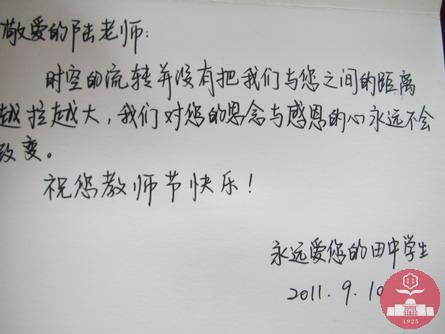 敬爱的陆老师:
时空的流转并没有把我们与您之间的距离
越拉越大,我们对您的思念与感恩的心永远不会
改变。
祝您教师节快乐!
永远爱您的田中学生
2011.9.10
1925